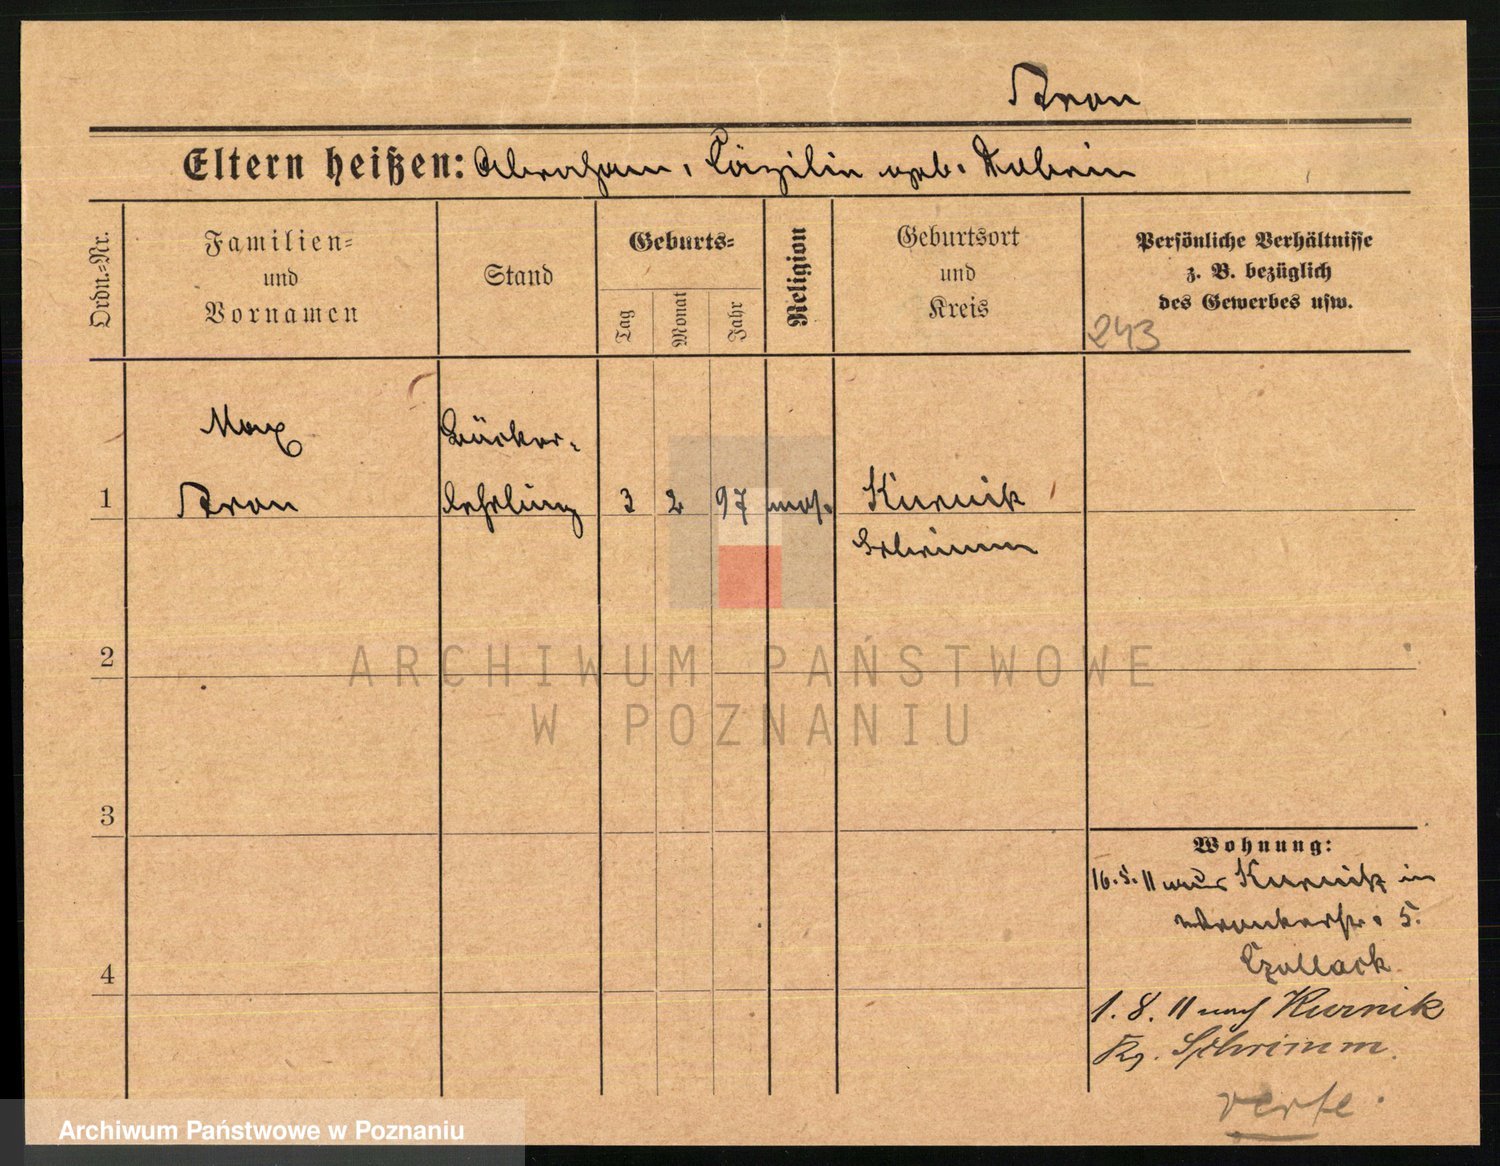 Aron
Eltern heißen: Abraham, Cäzilie geb.
Ordn.=Nr.
Familien=
und
Vornamen
Stand
Geburts=
Tag
Monat
Jahr
Religion
Geburtsort
und
Kreis
Persönliche Verhältnisse
z. B. bezüglich
des Gewerbes usw.
243
Max
Aron
Bäcker-
lehrling
1
3 2 97 mos.
Kurnik
Schrimm
2
3
4
Wohnung:
16.5.11 aus Kurnik in
Wronkerstr. 5.
1. 8. 11 nach Kurnik
Kr. Schrimm.
verte.
ARCHIWUM PAŃSTWOWE
W POZNANIU
Archiwum Państwowe w Poznaniu